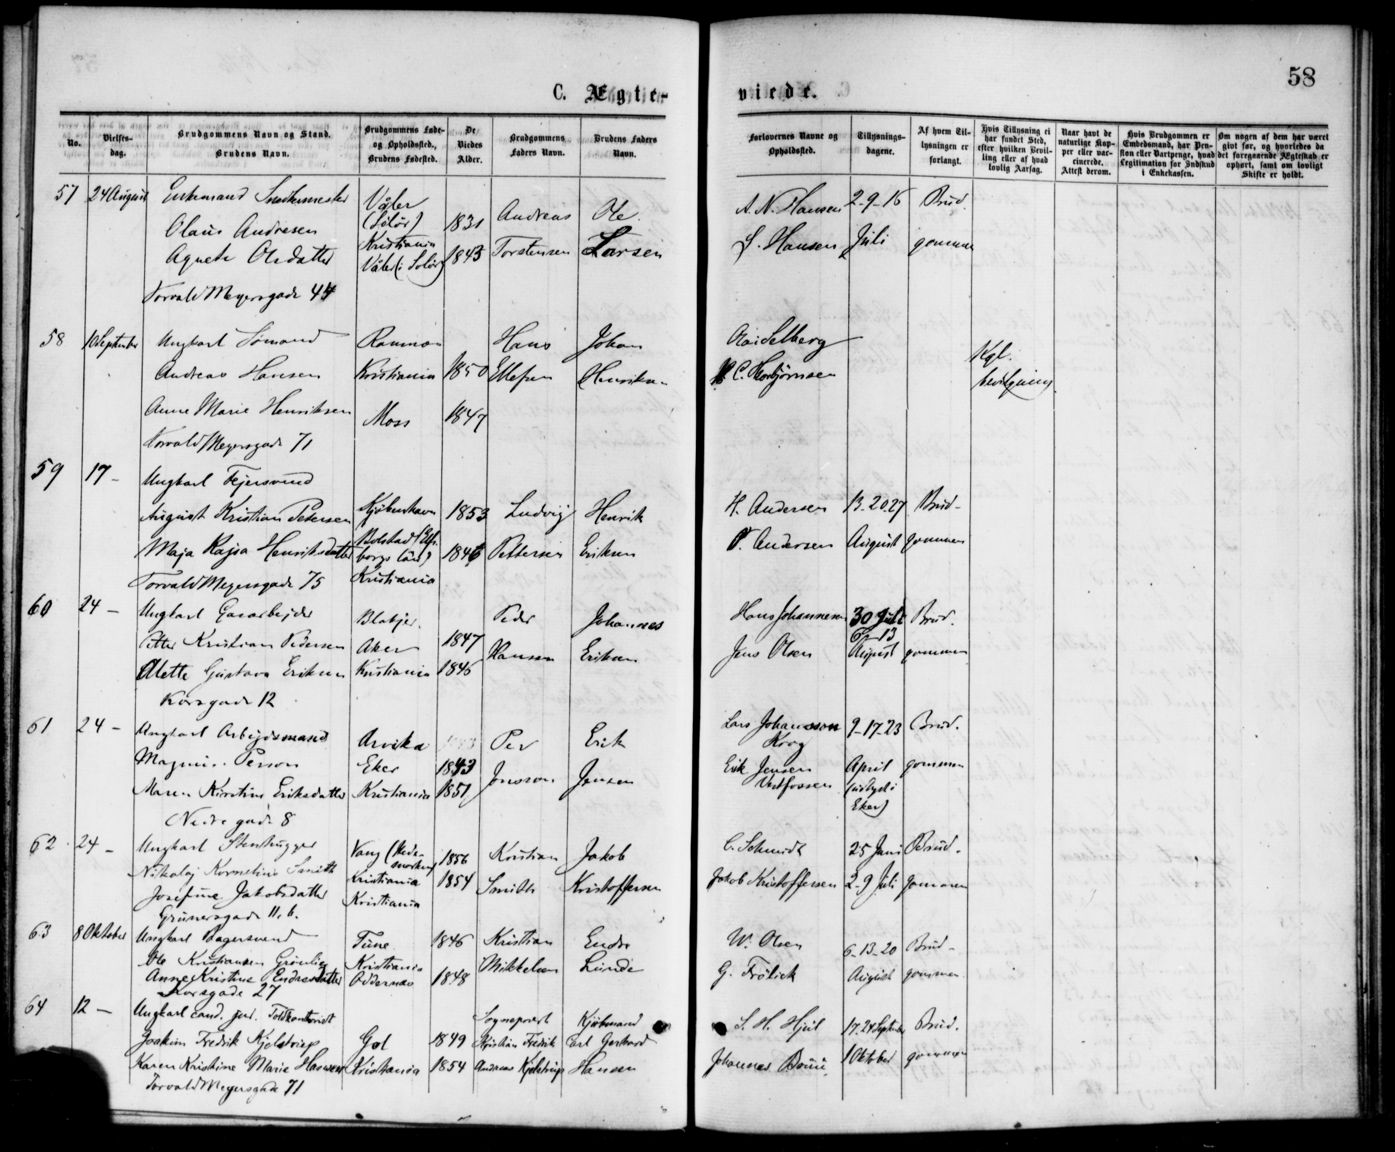 58
C. Ægte-
viede.
No.
Vielses-
dag.
Brudgommens Navn og Stand.
Brudens Navn.
Brudgommens Føde-
og Opholdssted,
Brudens Fødested.
De
Viedes
Alder.
Brudgommens
Faders Navn.
Brudens Faders
Navn.
Forlovernes Navne og
Opholdssted.
Tillysnings-
dagene.
Af hvem Til-
lysningen er
forlangt.
Hvis Tillysning ei
har fundet Sted,
efter hvilken Bevil-
ling eller af hvad
lovlig Aarsag.
Naar havt de
naturlige Kop-
per eller vac-
cinerede.
Attest derom.
Hvis Brudgommen er
Embedsmand, har Pen-
sion eller Vartpenge, hvad
Legitimation for Indskud
i Enkekassen.
Om nogen af dem har været
givt før, og hvorledes da
det foregaaende Ægteskab er
ophørt, samt om lovligt
Skifte er holdt.
57 24 August Enkemand Snekermester Våler Andreas Ole A. N. Hansen 2-9-16 Brud
Olaus Andresen (Solør) 1831
Kristiania Torstensen Larsen S. Hansen Juli gommen
Agnete Olsdatter Våler (i Solør) 1843
Torvald Meyersgade 44
58 10 September Ungkarl Sømand Hans Johan Selberg
Andreas Hansen Kristiania 1850 Ellefsen Henriksen C. Korbjørnsen Kgl.
bevilgning
Anne Marie Henriksen Moss 1847
Torvald Meyersgade 71
59 17 - Ungkarl Fejersvend
August Kristian Petersen Kjøbenhavn 1853 Ludvig Henrik H. Andersen 13.20.27 Brud-
Maja Kajsa Henriksdatter Bolstad (Elfs- 1846 Pettersen Eriksen P. Andersen August gommen
borgs län)
Torvald Meyersgade 75 Kristiania
60 24 - Ungkarl Gasarbejder Peder Johannes Hans Johannesen 30 Juli Brud.
Petter Kristian Pedersen Aker 1847 Hansen Eriksen Jens Olsen 6-13 August gommen
Alette Gustava Eriksen Kristiania 1846
Korsgade 12
61 24 - Ungkarl Arbejdsmand Arvika Per Erik Lars Johansson 9-17.23 Brud.
Korg
Magnus Person Eker 1843 Jonsson Jensen Erik Jensen April gommen
Maren Kirstine Eriksdatter Kristiania 1851 Vestfossen (udlyst i
Eker)
Nedregade 8
62 24 - Ungkarl Stenhugger Vang (Hede- 1856 Kristian Jakob C. Schmidt 25 Juni Brud-
marken)
Nikolaj Kornelius Smith Kristiania 1854 Smith Kristoffersen Jakob Kristoffersen 2-9 Juli gommen
Josefine Jakobsdatter Kristiania
Grünersgade 11. b.
63 8 Oktober Ungkarl Bagersvend Tune 1846 Kristian Endre W. Olsen 6-13-20 Brud-
Ole Kristiansen Grønlie Kristiania Mikkelsen Lunde G. Frølick August gommen
Anne Kristine Endresdatter Oddernæs 1848
Korsgade 27
64 12 - Ungkarl cand. jur. Toldkontorist Sognepræst Kjøbmand S. H. Hjul 17.24 September Brud.
Joakim Fredrik Kjelstrup Gol 1849 Kristian Fredrik Carl Gerhard
Karen Kristine Marie Hansen Kristiania 1854 Andreas Kjelstrup Hansen Johannes Bruun 1 Oktober gommen
Torvald Meyersgade 71